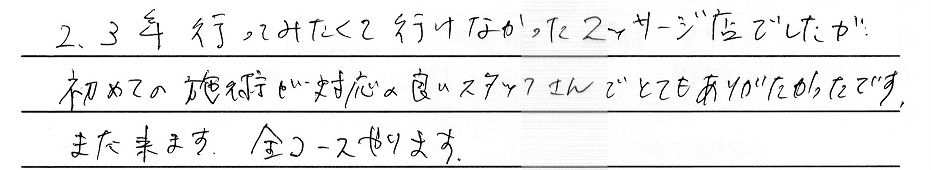 2、3年行ってみたくて行けなかったマッサージ店でしたが
初めての施術が対応の良いスタッフさんでとてもありがたかったです,
また来ます. 全コースやります.